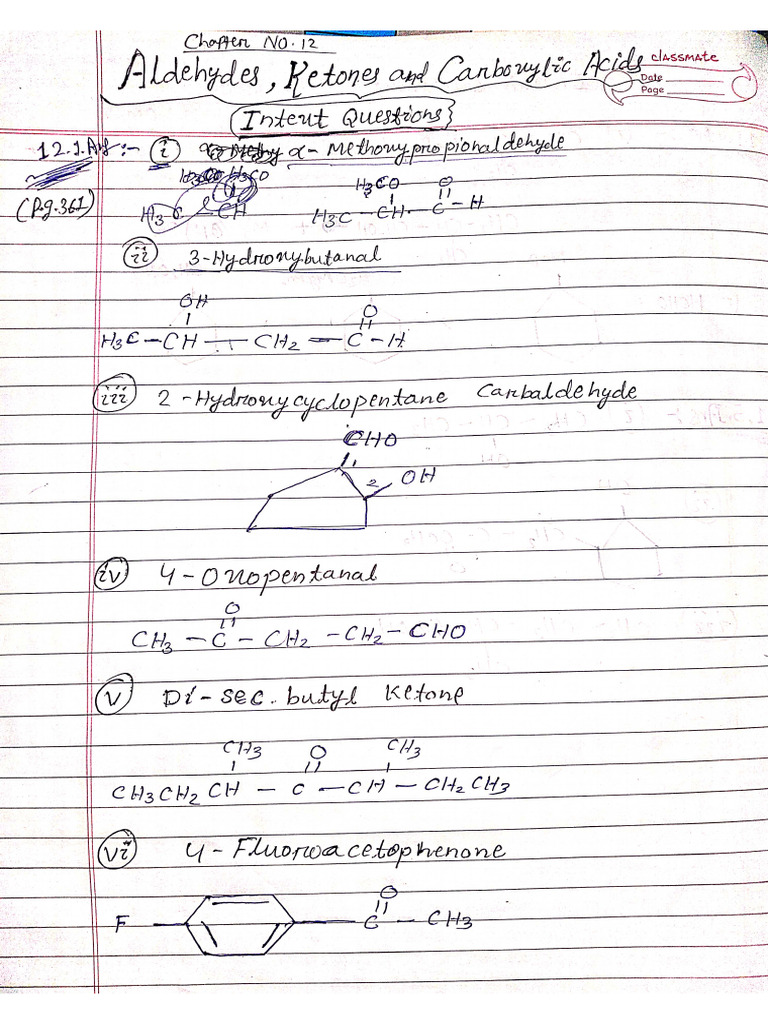 Chapter NO. 12
Aldehydes, Ketones and Carboxylic Acids
classmate
Date
Page
Intext Questions
12.1 Ans :- (i) α- Methoxypropionaldehyde
(P.g.361)
H3CO O
H3C - CH - C - H
(ii) 3-Hydroxybutanal
OH O
H3C - CH - CH2 - C - H
(iii) 2-Hydroxycyclopentane carbaldehyde
CHO
2 OH
(iv) 4-Oxopentanal
O
CH3 - C - CH2 - CH2 - CHO
(v) Di-sec. butyl ketone
CH3 O CH3
CH3CH2CH - C - CH - CH2CH3
(vi) 4-Fluoroacetophenone
O
F C - CH3